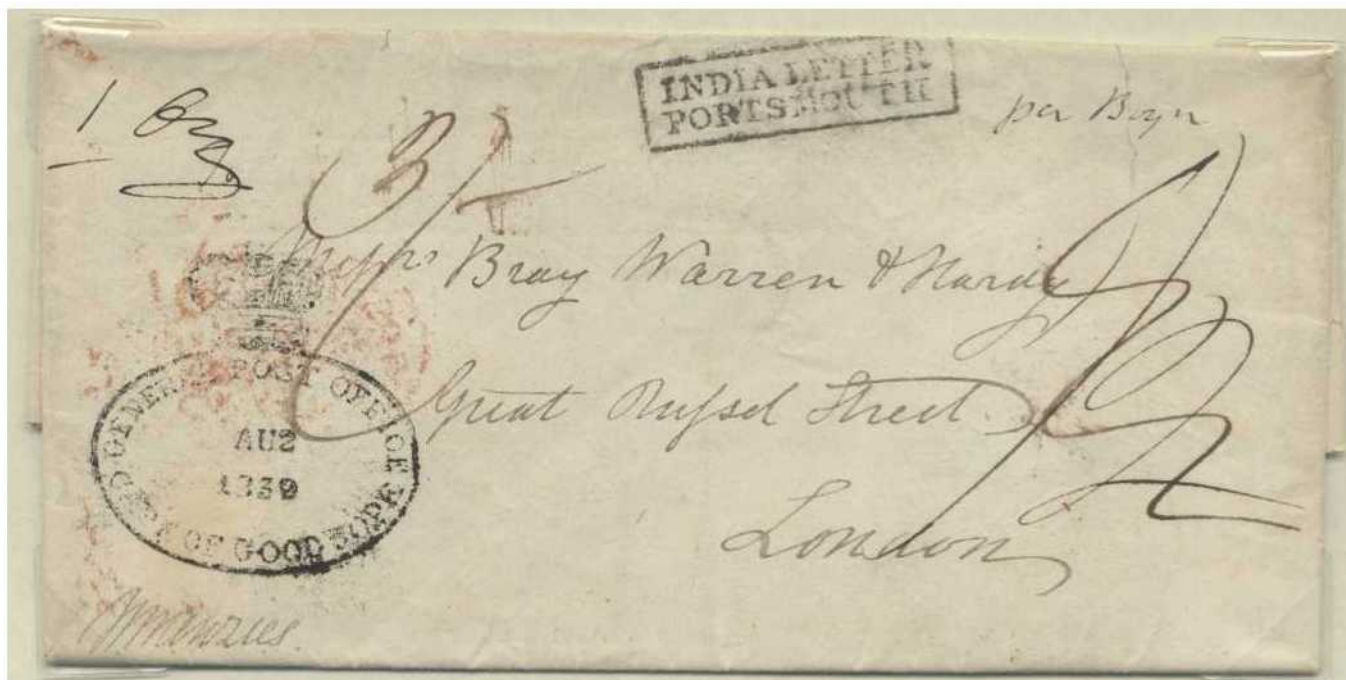 INDIA LETTER
PORTSMOUTH
1 Oz
3/-
per Boyn
Messrs Bray Warren & Hardy
Great Russel Street
London
GENERAL POST OFFICE
AU2
1839
OF GOOD HOPE